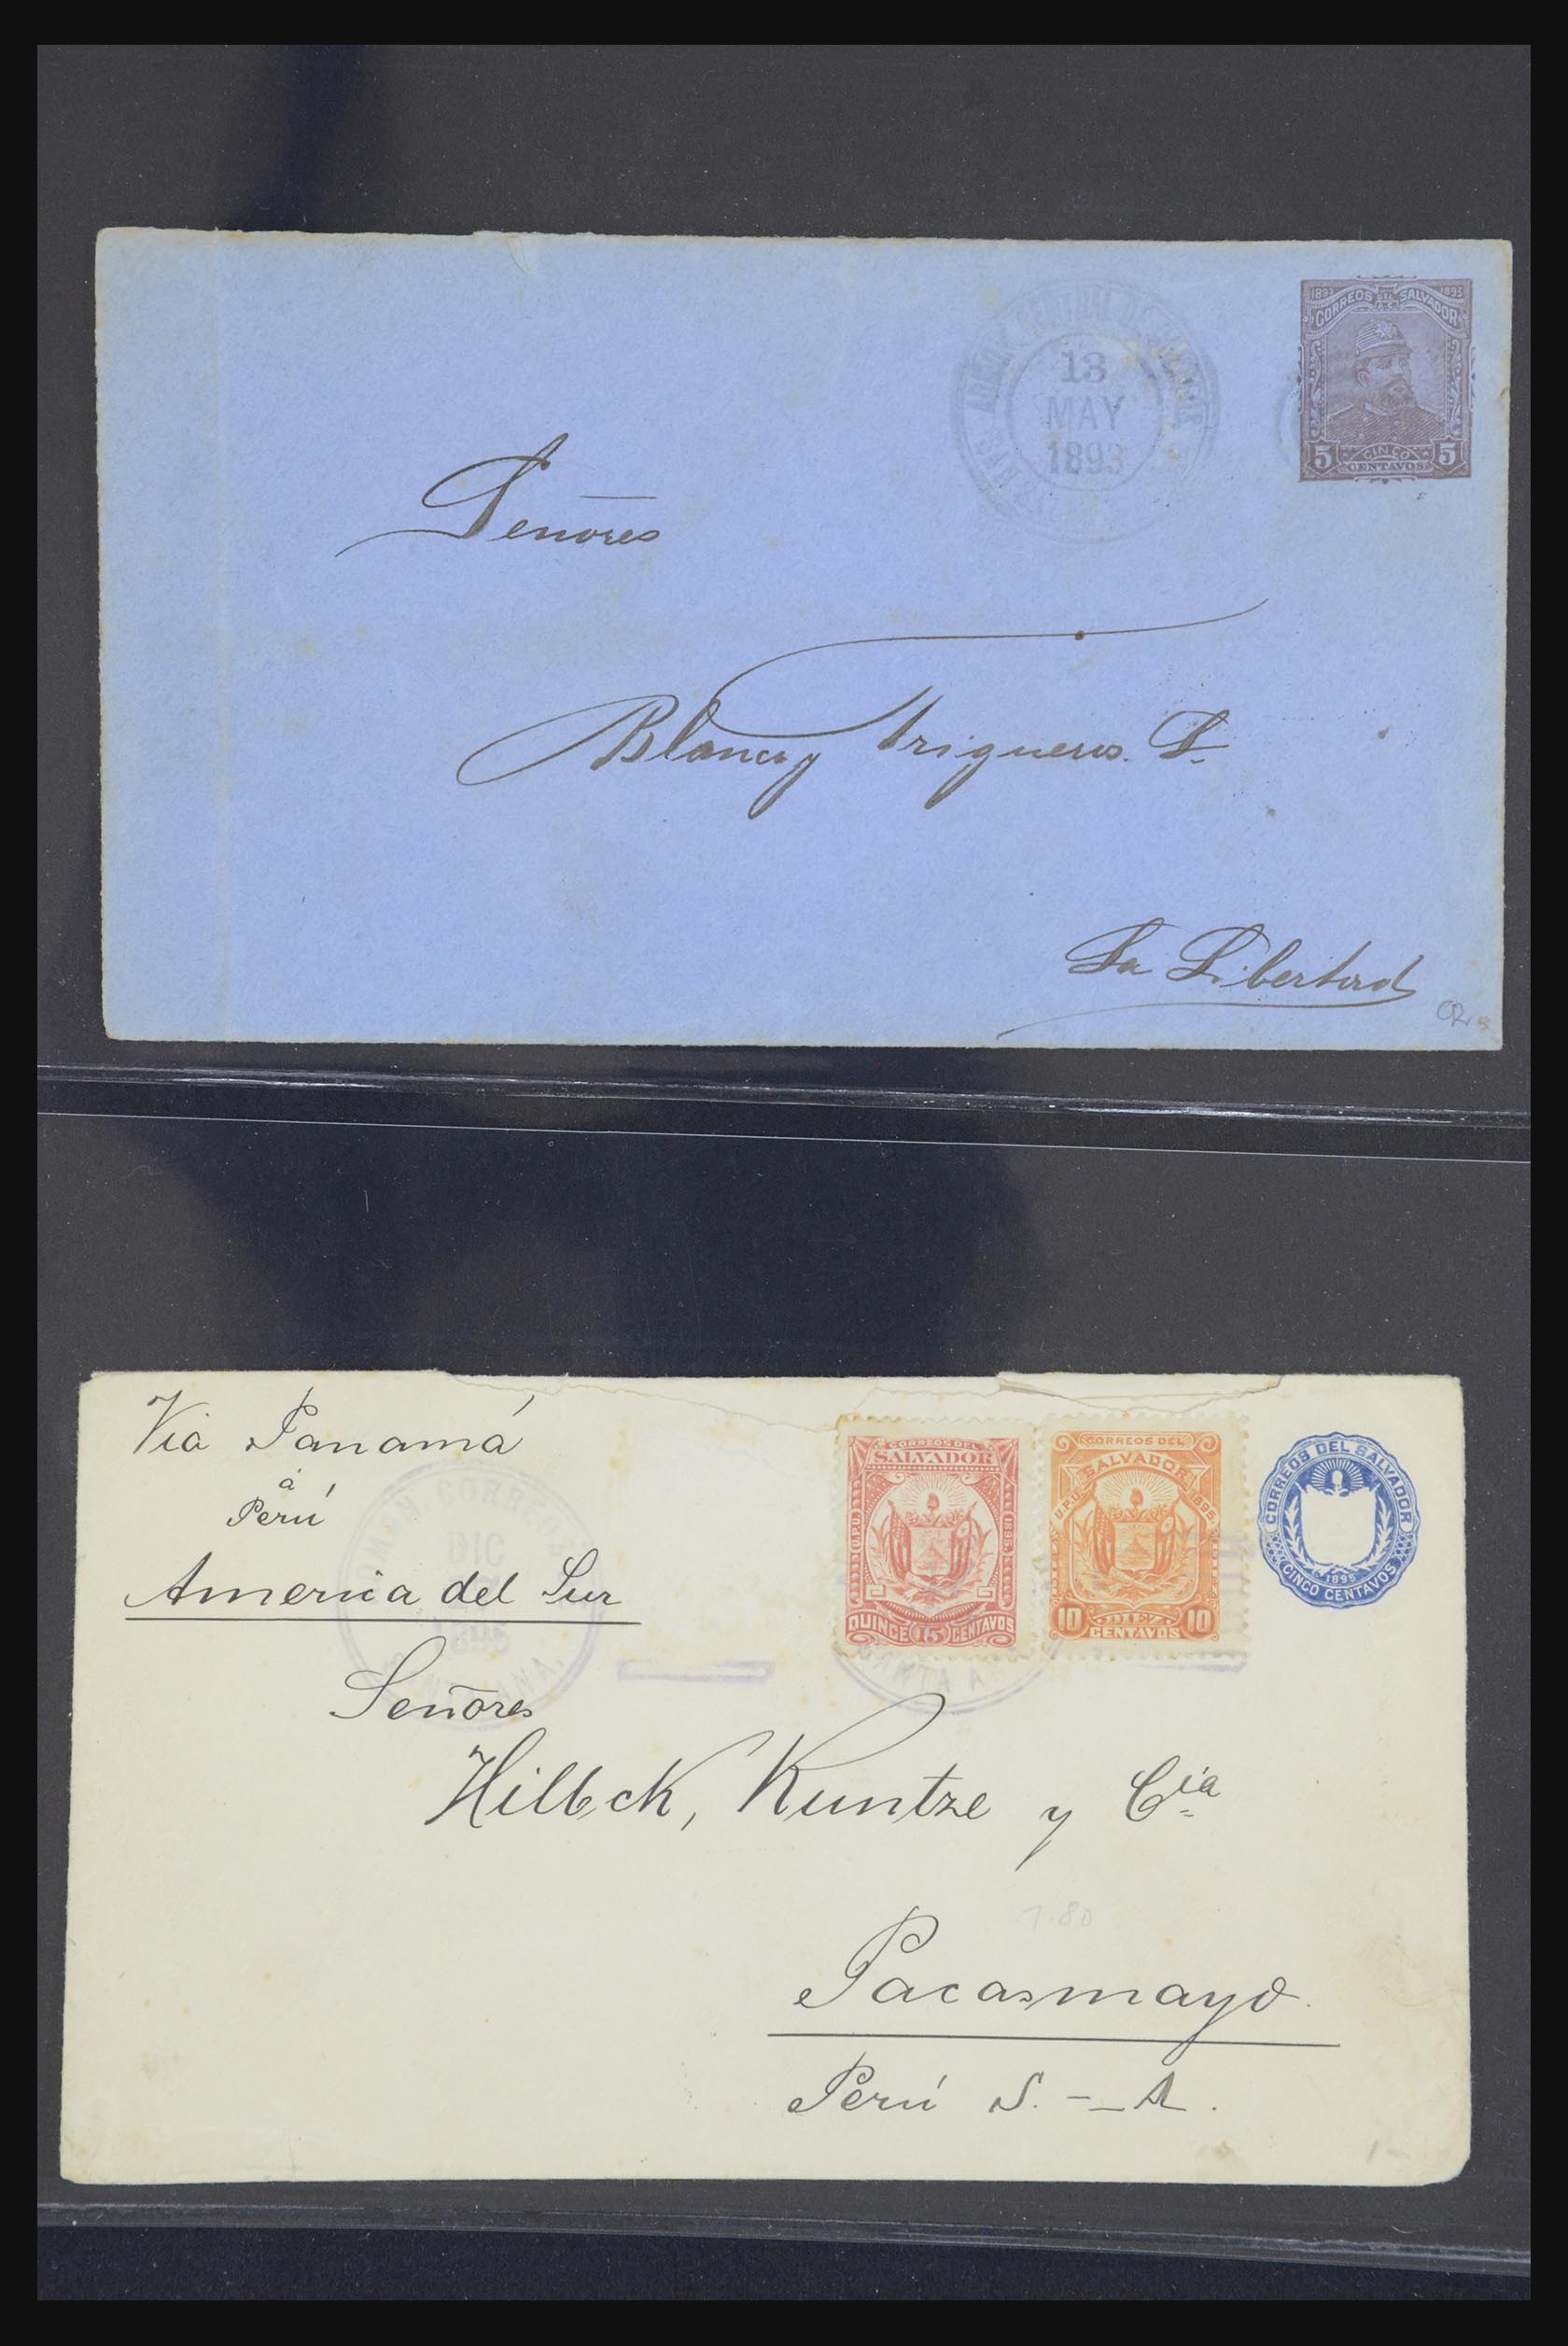 1893 1893
CORREOS DEL SALVADOR
5 CINCO 5
CENTAVOS
CENTRAL
13
MAY
1893
Señores
Blanco y Trigueros. S.
La Libertad
Via Panamá
á
Perú
America del Sur
CORREOS
DIC
SANTA A
CORREOS DEL
SALVADOR
U.P.U. 1895.
QUINCE 15 CENTAVOS
CORREOS DEL
SALVADOR
U.P.U. 1895.
10 DIEZ 10
CENTAVOS
CORREOS DEL SALVADOR
1895
CINCO CENTAVOS
Señores
Hilbck, Kuntze y Cia
1.80
Pacasmayo.
Perú S. - A.